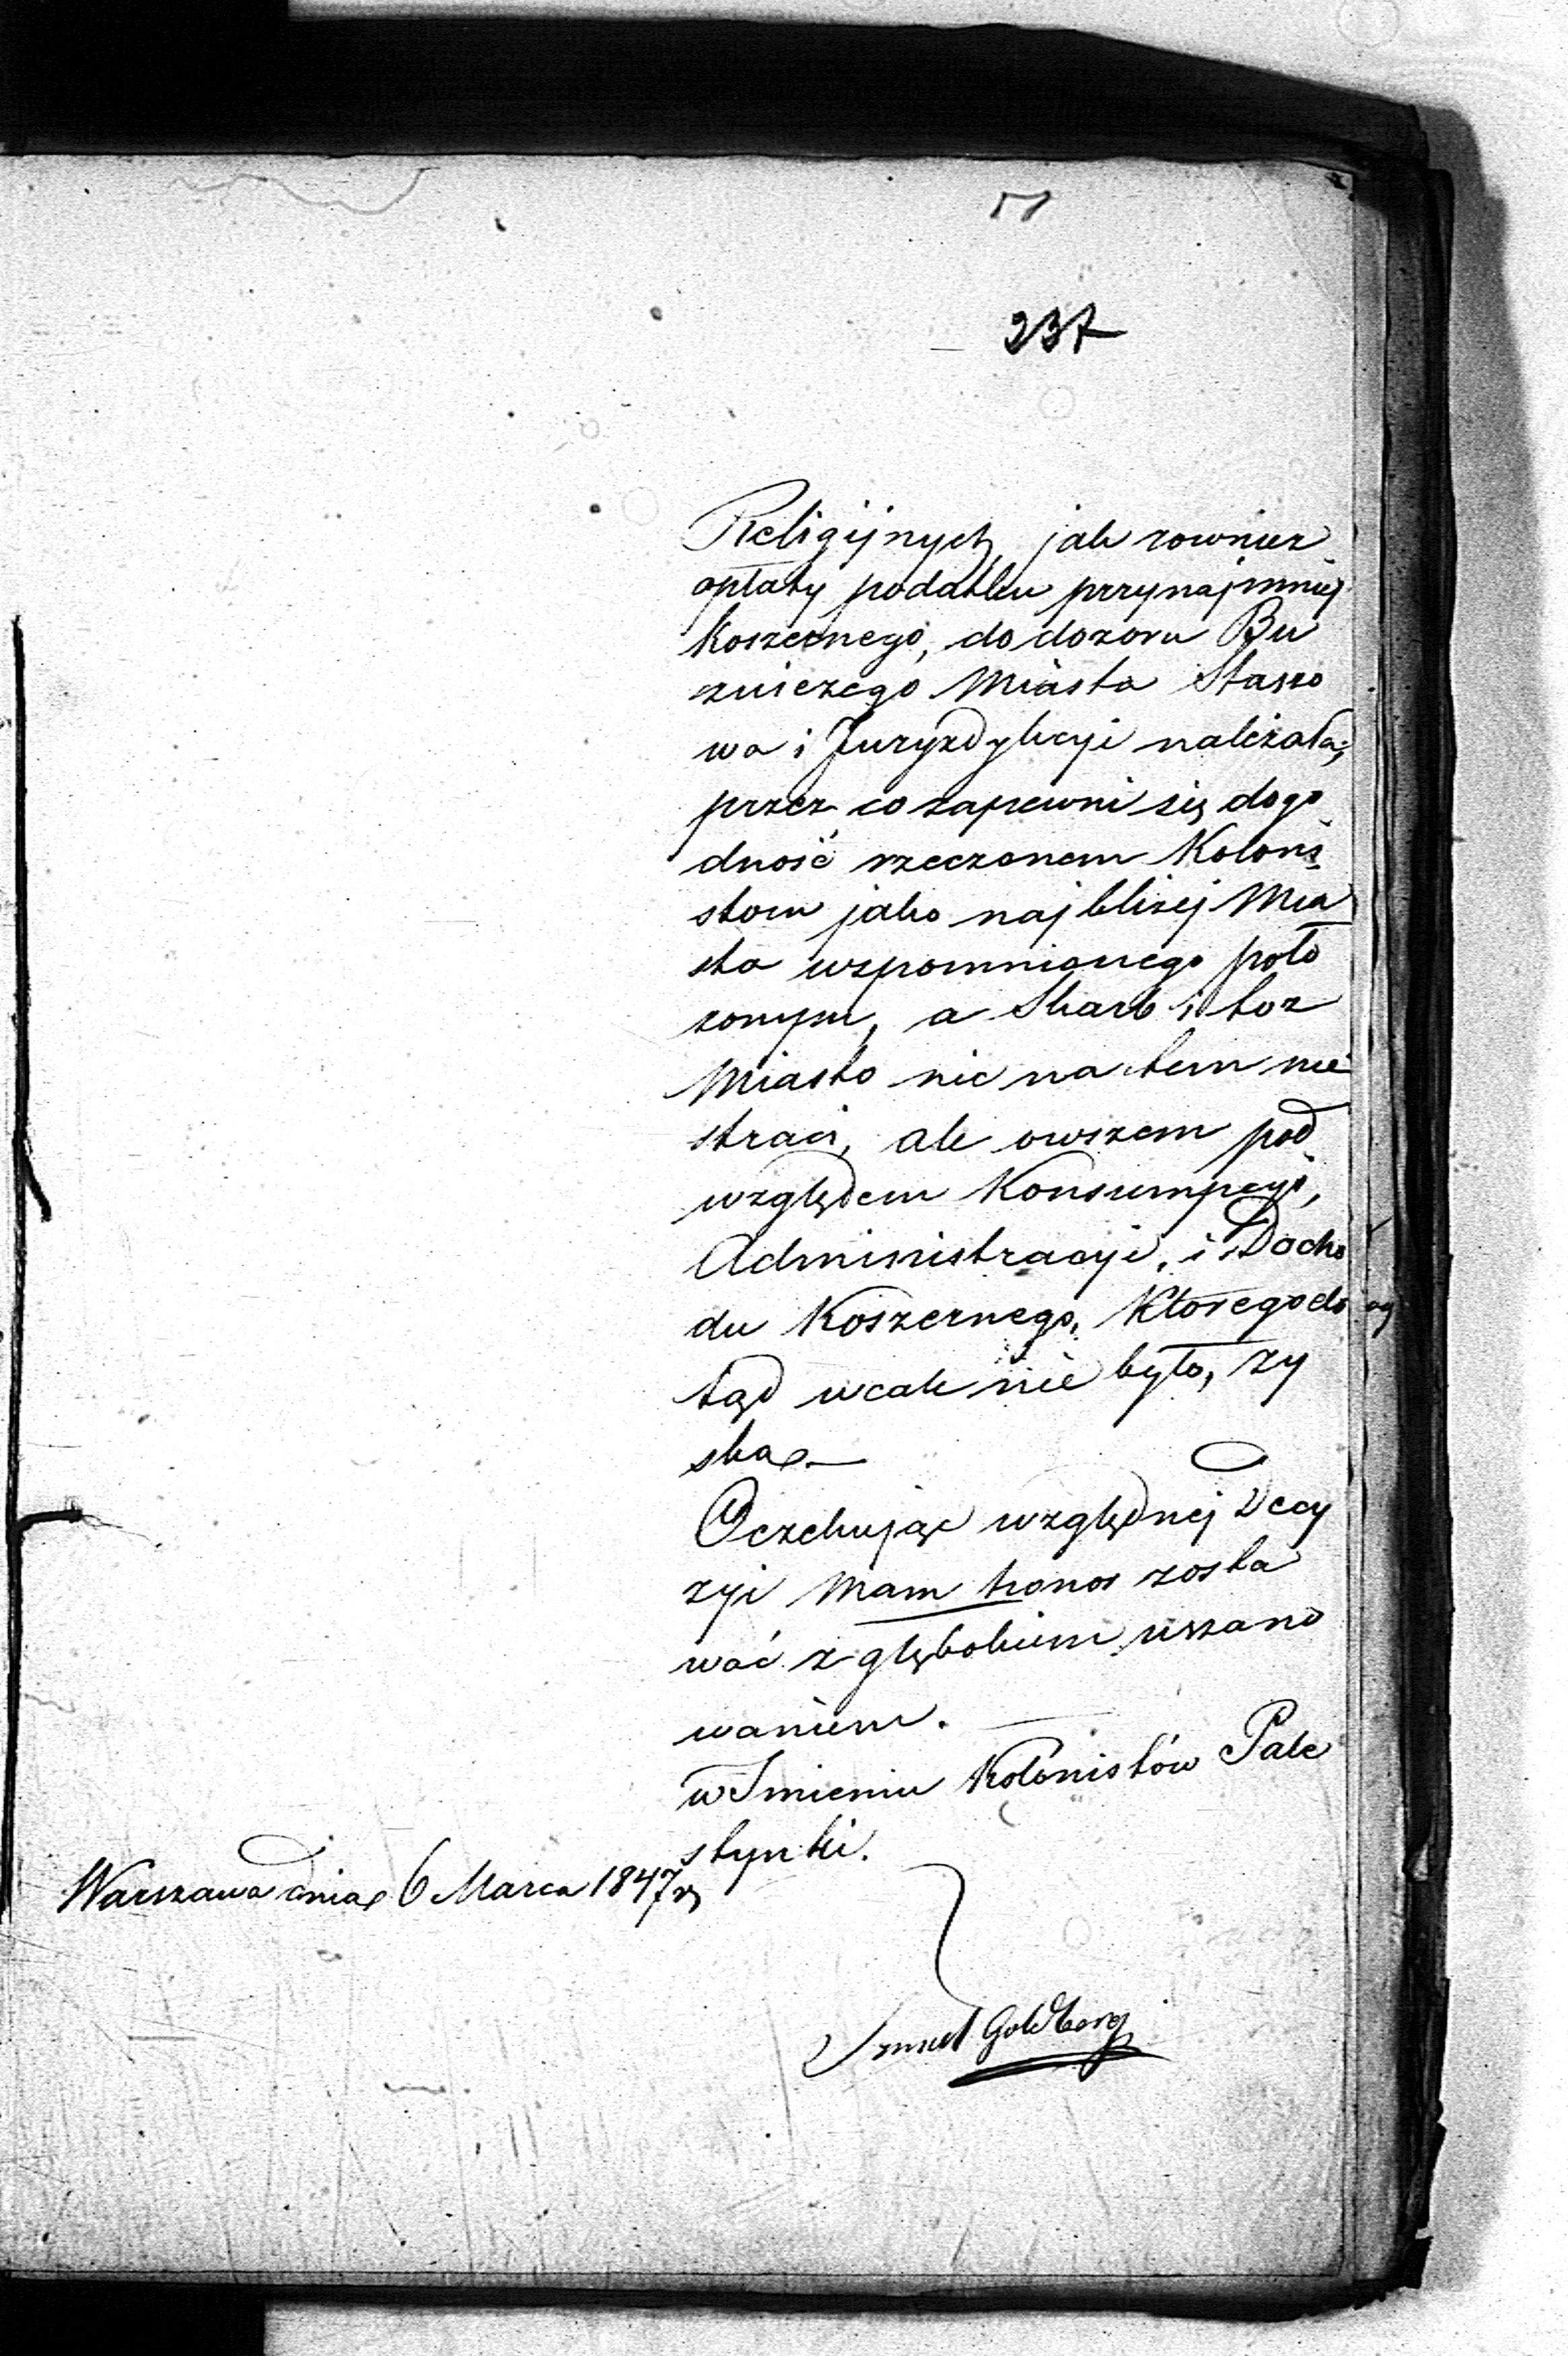 237
Religijnych, jak rownież
opłaty podatku przynajmniej
Koszernego, do dozoru Bu
zniczego Miasta Staszo
wa i Juryzdykcyi należała,
przez co zapewni się dogo
dność rzeczonem Koloni
stom jako najbliżej Mia
sta wspomnionego poło
zonym, a Skarb i toż
Miasto nic na tem nie
straci, ale owszem pod
względem Konsumpcyi,
Administracyi, i Docho
du Koszernego, którego do
tąd wcale nie było, zy
ska
Oczekując względnej Decy
zyi Mam honor zosta
wać z głębokiem uszano
waniem.
w Imieniu Kolonistów Pale
stynki.
Warszawa dnia 6 Marca 1847 r
Szmul Goldberg